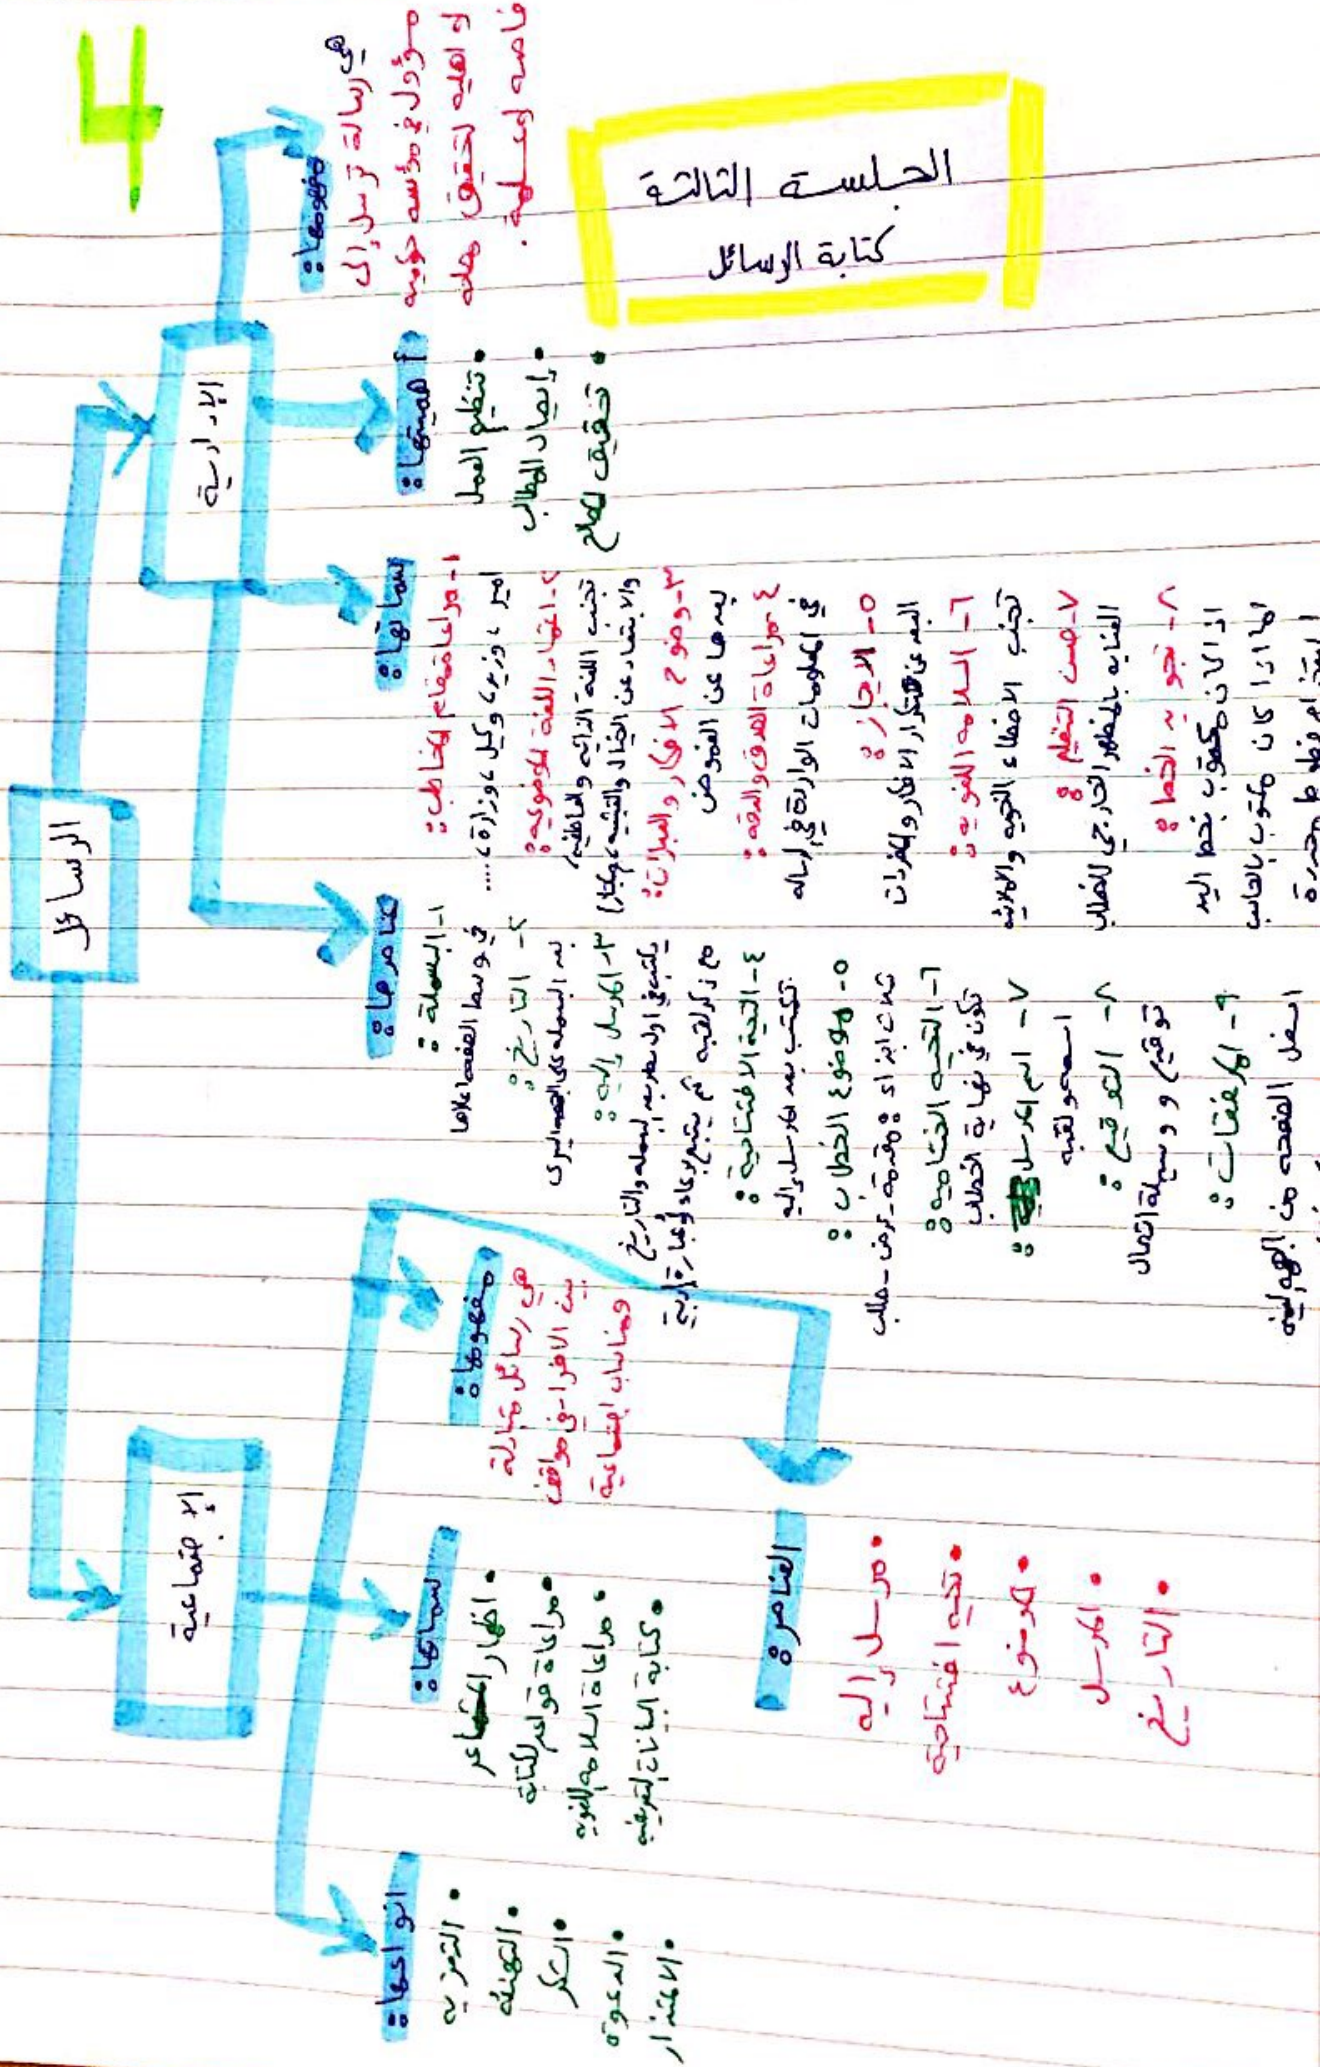 4
الجلسة الثالثة
كتابة الرسائل
الرسائل
الإدارية
مفهومها:
هي رسالة ترسل إلى
مسؤول في مؤسسه حكوميه
او اهليه لتحقيق مصلحه
خاصه او عامة.
أهميتها:
• تنظيم العمل
• إيصال المطالب
• تحقيق المصالح
سماتها:
١- مراعاة مقام المخاطب:
امير، وزير، وكيل، وزارة، .....
٢- اعتماد اللغة الموضوعية:
تجنب اللغة الذاتيه والعاطفيه،
والابتعاد عن الخيال والتشبيه
٣- وضوح الافكار والعبارات:
بعدها عن الغموض
٤- مراعاة الصدق والدقه:
في المعلومات الواردة في الرساله
٥- الايجاز:
البعد عن تكرار الافكار والمفردات
٦- السلامه اللغويه:
تجنب الاخطاء النحويه والاملائيه
٧- حسن التنظيم:
العنايه بالمظهر الخارجي للخطاب
٨- تجويد الخط:
اذا كان مكتوب بخط اليد
اما اذا كان مكتوب بالحاسب
استخدام خطوط محددة
عناصرها:
١- البسملة:
في وسط الصفحه اعلاها
٢- التاريخ:
بعد البسمله على الجهه اليسرى
٣- المرسل إليه:
يكتب في اول سطر بعد البسمله والتاريخ
مع ذكر لقبه ثم يتبع بدعاء او عبارة ادبية
٤- التحية الافتتاحية:
تكتب بعد المرسل إليه
٥- موضوع الخطاب:
ثلاث اجزاء: مقدمة - عرض - طلب
٦- التحيه الختاميه:
تكون في نهاية الخطاب
٧- اسم المرسل:
اسمه ولقبه
٨- التوقيع:
توقيع و وسيلة اتصال
٩- المرفقات:
اسفل الصفحه من الجهه اليمنى
الإجتماعية
مفهومها:
هي رسائل متبادلة
بين الافراد في مواقف
ومناسبات اجتماعية
سماتها:
• اظهار المشاعر
• مراعاة قواعد الكتابة
• مراعاة السلامه اللغويه
• كتابة البيانات التعريفيه
انواعها:
• التعزيه
• التهنئه
• الشكر
• الدعوة
• الاعتذار
العناصر:
• مرسل إليه
• تحيه افتتاحية
• الموضوع
• المرسل
• التاريخ